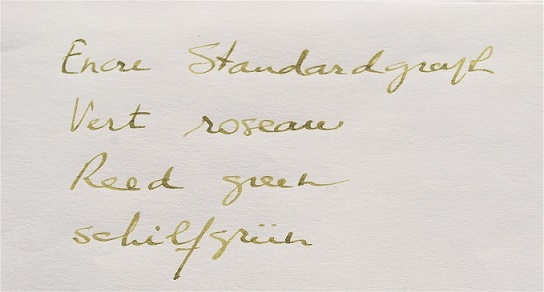 Encre Standardgraph
Vert roseau
Reed green
schilfgrün